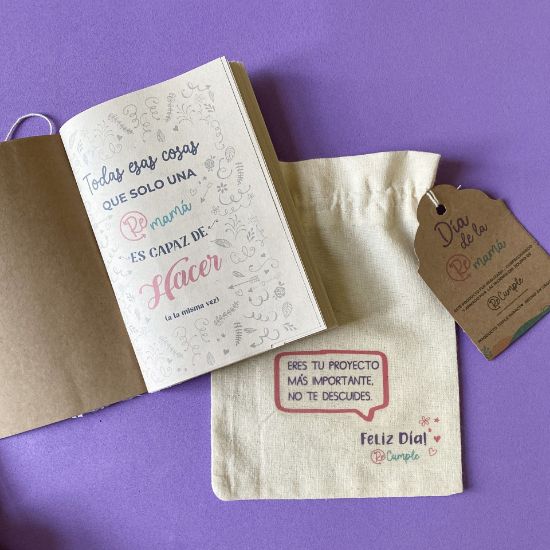 Todas esas cosas
QUE SOLO UNA
Re mamá
ES CAPAZ DE
Hacer
(a la misma vez)
ERES TU PROYECTO
MÁS IMPORTANTE,
NO TE DESCUIDES.
FELIZ DÍA!
ReCumple
Día
de la
Re mamá
ReCumple